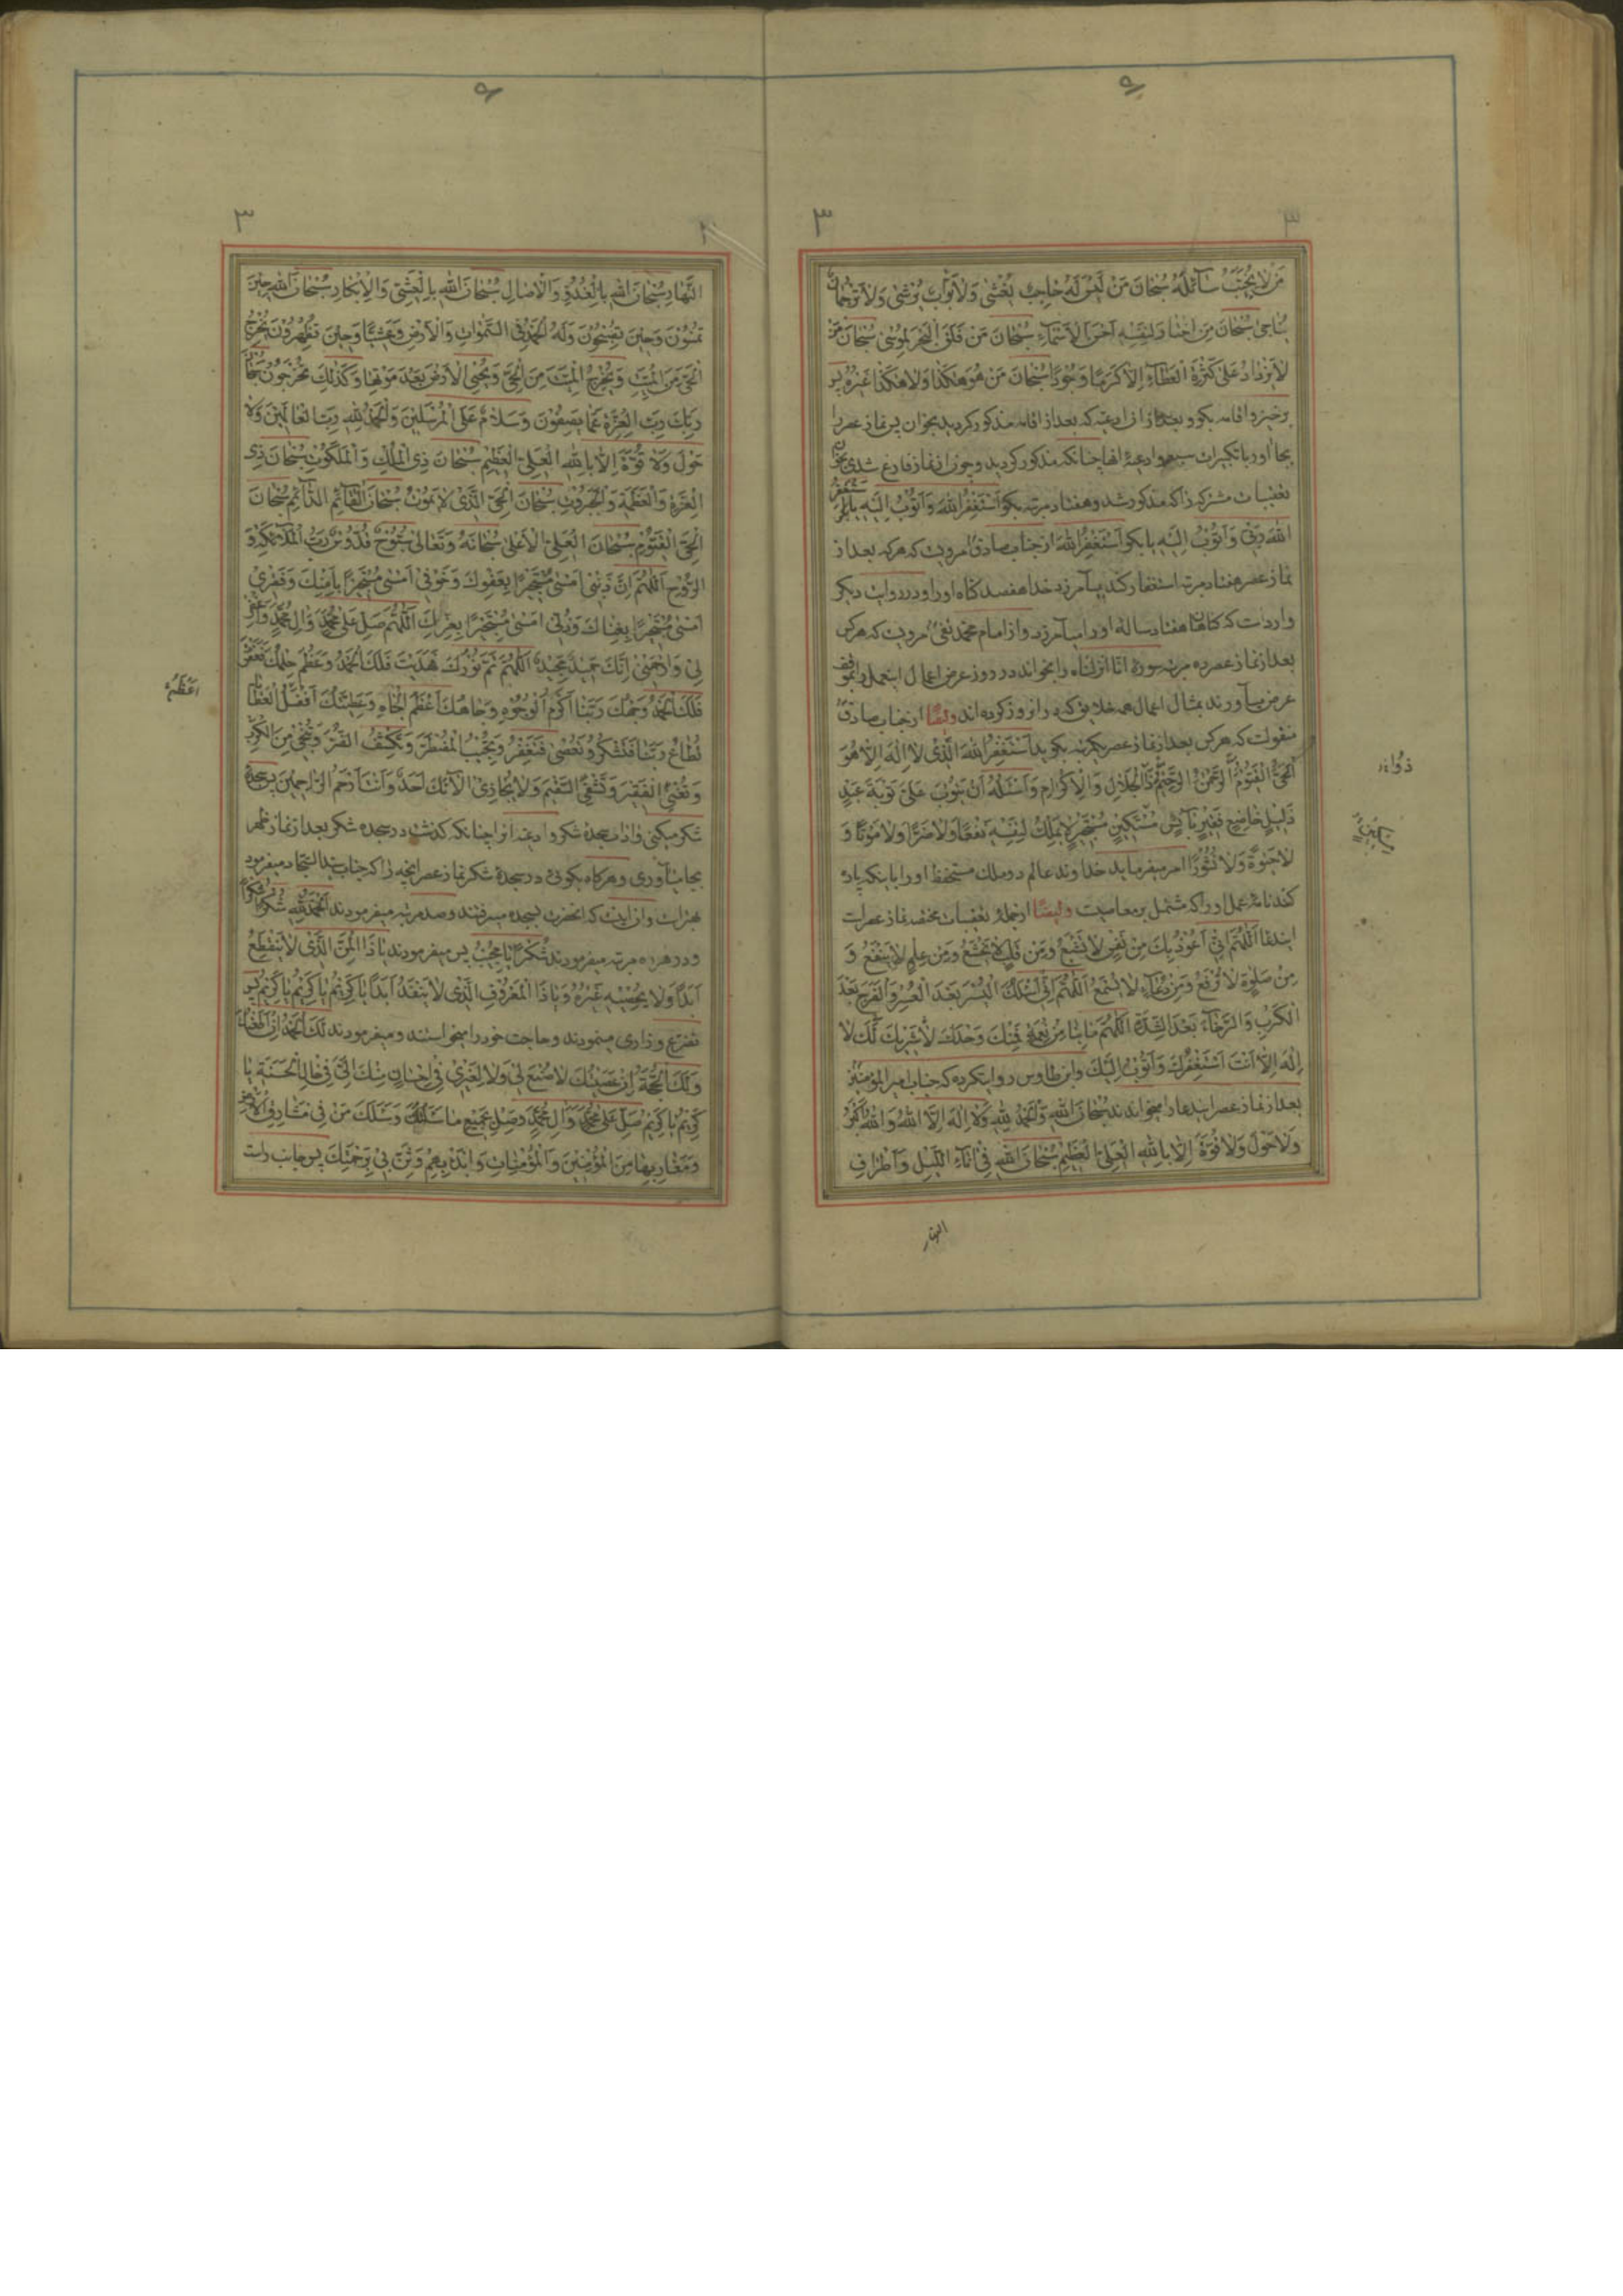 مَنْ لا يُخَيِّبُ سٰآئِلَهُ سُبْحٰانَ مَنْ لَيْسَ لَهُ حٰاجِبٌ يُغْشٰى وَلا بَوّٰابٌ يُرْشٰى وَلا تَرْجُمٰانٌ
يُنٰاجىٰ سُبْحٰانَ مَنِ اخْتٰارَ لِنَفْسِهِ اَحْسَنَ الْاَسْمٰآءِ سُبْحٰانَ مَنْ فَلَقَ الْبَحْرَ لِمُوسىٰ سُبْحٰانَ مَنْ
لا يَزْدٰادُ عَلىٰ كَثْرَةِ الْعَطٰآءِ اِلّا كَرَمًا وَجُودًا سُبْحٰانَ مَنْ هُوَ هٰكَذٰا وَلا هٰكَذٰا غَيْرُهُ پس
برخيز و اقامه بكو و بعد از ان ادعيه كه بعد از اقامه مذكور كرديد بخوان پس نماز عصر را
بجا اور با تكبيرات سبعه و ادعيهٔ انها چنانكه مذكور كرديد و چون از نماز فارغ شدى بخوان
تعقيبات مشتركه را كه مذكور شد و هفتاد مرتبه بكو اَسْتَغْفِرُ اللهَ وَاَتُوبُ اِلَيْهِ يا اَسْتَغْفِرُ
اللهَ رَبّى وَاَتُوبُ اِلَيْهِ يا بكو اَسْتَغْفِرُ اللهَ از جناب صادق مرويست كه هر كه بعد از
نماز عصر هفتاد مرتبه استغفار كند بيامرزد خدا هفتصد كناه او را و در روايت ديكر
وارد است كه كناهان هفتاد ساله او را بيامرزد و از امام محمد تقى مرويست كه هر كس
بعد از نماز عصر ده مرتبه سورهٔ انا انزلناه را بخواند در روز عرض اعمال اينعمل را بموقف
عرض مياورند بمثال اعمال همه خلايق كه در ان روز كرده اند و ايضًا از جناب صادق
منقولست كه هر كس بعد از نماز عصر يكمرتبه بكويد اَسْتَغْفِرُ اللهَ الَّذى لا اِلٰهَ اِلّا هُوَ
الْحَىُّ الْقَيُّومُ الرَّحْمٰنُ الرَّحيمُ ذَا الْجَلالِ وَالْاِكْرٰامِ وَاَسْئَلُهُ اَنْ يَتُوبَ عَلَىَّ تَوْبَةَ عَبْدٍ
ذَليلٍ خٰاضِعٍ فَقيرٍ بٰآئِسٍ مُسْتَكينٍ مُسْتَجيرٍ لا يَمْلِكُ لِنَفْسِهِ نَفْعًا وَلا ضَرًّا وَلا مَوْتًا وَ
لا حَيٰوةً وَلا نُشُورًا امر ميفرمايد خداوند عالم دو ملك مستحفظ او را باينكه پاره
كنند نامهٔ عمل او را كه مشتمل بر معاصيست و ايضًا از جملهٔ تعقيبات مختصه نماز عصر است
ايندعا اَللّٰهُمَّ اِنّى اَعُوذُ بِكَ مِنْ نَفْسٍ لا تَشْبَعُ وَمِنْ قَلْبٍ لا يَخْشَعُ وَمِنْ عِلْمٍ لا يَنْفَعُ وَ
مِنْ صَلٰوةٍ لا تُرْفَعُ وَمِنْ دُعٰآءٍ لا يُسْمَعُ اَللّٰهُمَّ اِنّى اَسْئَلُكَ الْيُسْرَ بَعْدَ الْعُسْرِ وَالْفَرَجَ بَعْدَ
الْكَرْبِ وَالرَّخٰآءَ بَعْدَ الشِّدَّةِ اَللّٰهُمَّ مٰا بِنٰا مِنْ نِعْمَةٍ فَمِنْكَ وَحْدَكَ لا شَريكَ لَكَ لا
اِلٰهَ اِلّا اَنْتَ اَسْتَغْفِرُكَ وَاَتُوبُ اِلَيْكَ و ابن طاوس روايتكرده كه جناب امير المؤمنين
بعد از نماز عصر ايندعا را ميخواندند سُبْحٰانَ اللهِ وَالْحَمْدُ لِلّٰهِ وَلا اِلٰهَ اِلّا اللهُ وَاللهُ اَكْبَرُ
وَلا حَوْلَ وَلا قُوَّةَ اِلّا بِاللهِ الْعَلِىِّ الْعَظيمِ سُبْحٰانَ اللهِ فى اٰنٰآءِ اللَّيْلِ وَاَطْرٰافِ
النهار
النَّهٰارِ سُبْحٰانَ اللهِ بِالْغُدُوِّ وَالْاٰصٰالِ سُبْحٰانَ اللهِ بِالْعَشِىِّ وَالْاِبْكٰارِ سُبْحٰانَ اللهِ حينَ
تُمْسُونَ وَحينَ تُصْبِحُونَ وَلَهُ الْحَمْدُ فِى السَّمٰوٰاتِ وَالْاَرْضِ وَعَشِيًّا وَحينَ تُظْهِرُونَ يُخْرِجُ
الْحَىَّ مِنَ الْمَيِّتِ وَيُخْرِجُ الْمَيِّتَ مِنَ الْحَىِّ وَيُحْيِى الْاَرْضَ بَعْدَ مَوْتِهٰا وَكَذٰلِكَ تُخْرَجُونَ سُبْحٰانَ
رَبِّكَ رَبِّ الْعِزَّةِ عَمّٰا يَصِفُونَ وَسَلامٌ عَلَى الْمُرْسَلينَ وَالْحَمْدُ لِلّٰهِ رَبِّ الْعٰالَمينَ وَلا
حَوْلَ وَلا قُوَّةَ اِلّا بِاللهِ الْعَلِىِّ الْعَظيمِ سُبْحٰانَ ذِى الْمُلْكِ وَالْمَلَكُوتِ سُبْحٰانَ ذِى
الْعِزَّةِ وَالْعَظَمَةِ وَالْجَبَرُوتِ سُبْحٰانَ الْحَىِّ الَّذى لا يَمُوتُ سُبْحٰانَ الْقٰآئِمِ الدّٰآئِمِ سُبْحٰانَ
الْحَىِّ الْقَيُّومِ سُبْحٰانَ الْعَلِىِّ الْاَعْلىٰ سُبْحٰانَهُ وَتَعٰالىٰ سُبُّوحٌ قُدُّوسٌ رَبُّ الْمَلٰٓئِكَةِ وَ
الرُّوحِ اَللّٰهُمَّ اِنَّ ذَنْبى اَمْسىٰ مُسْتَجيرًا بِعَفْوِكَ وَخَوْفى اَمْسىٰ مُسْتَجيرًا بِاَمْنِكَ وَفَقْرى
اَمْسىٰ مُسْتَجيرًا بِغِنٰاكَ وَذُلّى اَمْسىٰ مُسْتَجيرًا بِعِزِّكَ اَللّٰهُمَّ صَلِّ عَلىٰ مُحَمَّدٍ وَاٰلِ مُحَمَّدٍ وَاغْفِرْ
لى وَارْحَمْنى اِنَّكَ حَميدٌ مَجيدٌ اَللّٰهُمَّ تَمَّ نُورُكَ فَهَدَيْتَ فَلَكَ الْحَمْدُ وَعَظُمَ حِلْمُكَ فَعَفَوْتَ
فَلَكَ الْحَمْدُ وَجْهُكَ رَبَّنٰا اَكْرَمُ الْوُجُوهِ وَجٰاهُكَ اَعْظَمُ الْجٰاهِ وَعَطِيَّتُكَ اَفْضَلُ الْعَطٰايٰا
تُطٰاعُ رَبَّنٰا فَتَشْكُرُ وَتُعْصىٰ فَتَغْفِرُ وَتُجيبُ الْمُضْطَرَّ وَتَكْشِفُ الضُّرَّ وَتُنْجى مِنَ الْكَرْبِ
وَتُغْنِى الْفَقيرَ وَتَشْفِى السَّقيمَ وَلا يُجٰازى اٰلآئَكَ اَحَدٌ وَاَنْتَ اَرْحَمُ الرّٰاحِمينَ پس سجدهٔ
شكر ميكنى و اداب سجدهٔ شكر و ادعيه انرا چنانكه كذشت در سجده شكر بعد از نماز ظهر
بجا مياورى و هركاه بكوئى در سجدهٔ شكر نماز عصر انچه را كه جناب سيد السجاد ميفرمود
بهتر است و ان اينست كه انحضرت بسجده ميرفتند و صد مرتبه ميفرمودند اَلْحَمْدُ لِلّٰهِ شُكْرًا
و در هر ده مرتبه ميفرمودند شُكْرًا لِلْمُجيبِ پس ميفرمودند يٰا ذَا الْمَنِّ الَّذى لا يَنْقَطِعُ
اَبَدًا وَلا يُحْصيهِ غَيْرُهُ وَيٰا ذَا الْمَعْرُوفِ الَّذى لا يَنْفَدُ اَبَدًا يٰا كَريمُ يٰا كَريمُ يٰا كَريمُ پس
تضرع و زارى مينمودند و حاجت خود را ميخواستند و ميفرمودند لَكَ الْحَمْدُ اِنْ اَطَعْتُكَ
وَلَكَ الْحُجَّةُ اِنْ عَصَيْتُكَ لا صُنْعَ لى وَلا لِغَيْرى فى اِحْسٰانٍ مِنْكَ اِلَىَّ فى حٰالِ الْحَسَنَةِ يٰا
كَريمُ يٰا كَريمُ صَلِّ عَلىٰ مُحَمَّدٍ وَاٰلِ مُحَمَّدٍ وَصِلْ بِجَميعِ مٰا سَئَلْتُكَ وَسَئَلَكَ مَنْ فى مَشٰارِقِ الْاَرْضِ
وَمَغٰارِبِهٰا مِنَ الْمُؤْمِنينَ وَالْمُؤْمِنٰاتِ وَابْدَءْ بِهِمْ وَثَنِّ بى بِرَحْمَتِكَ پس جانب راست